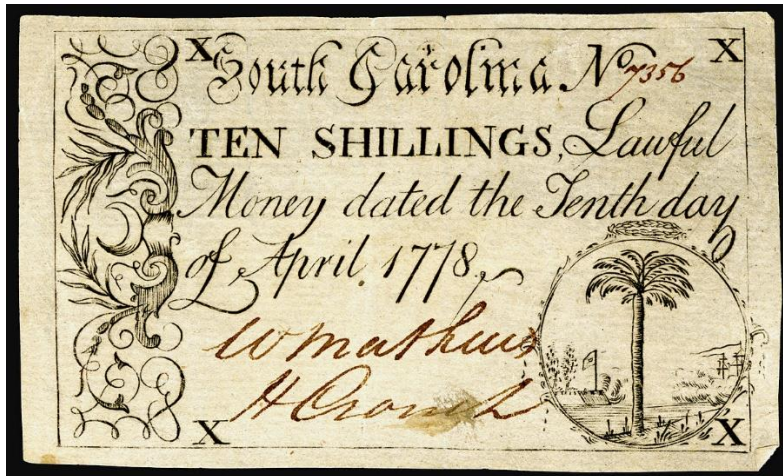 X South Carolina No 7356 X
TEN SHILLINGS, Lawful
Money dated the Tenth day
of April, 1778.
W Mathews
H Crouch
X X